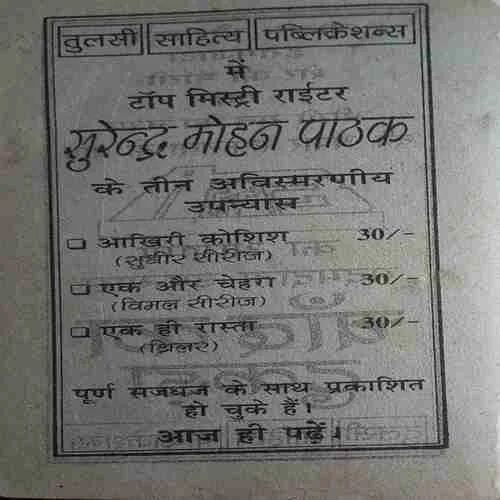 तुलसी साहित्य पब्लिकेशन्स
में
टॉप मिस्ट्री राईटर
सुरेन्द्र मोहन पाठक
के तीन अविस्मरणीय
उपन्यास
आखिरी कोशिश 30/-
(सुधीर सीरीज)
एक और चेहरा 30/-
(विमल सीरीज)
एक ही रास्ता 30/-
(थ्रिलर)
पूर्ण सजधज के साथ प्रकाशित
हो चुके हैं।
आज ही पढ़ें।